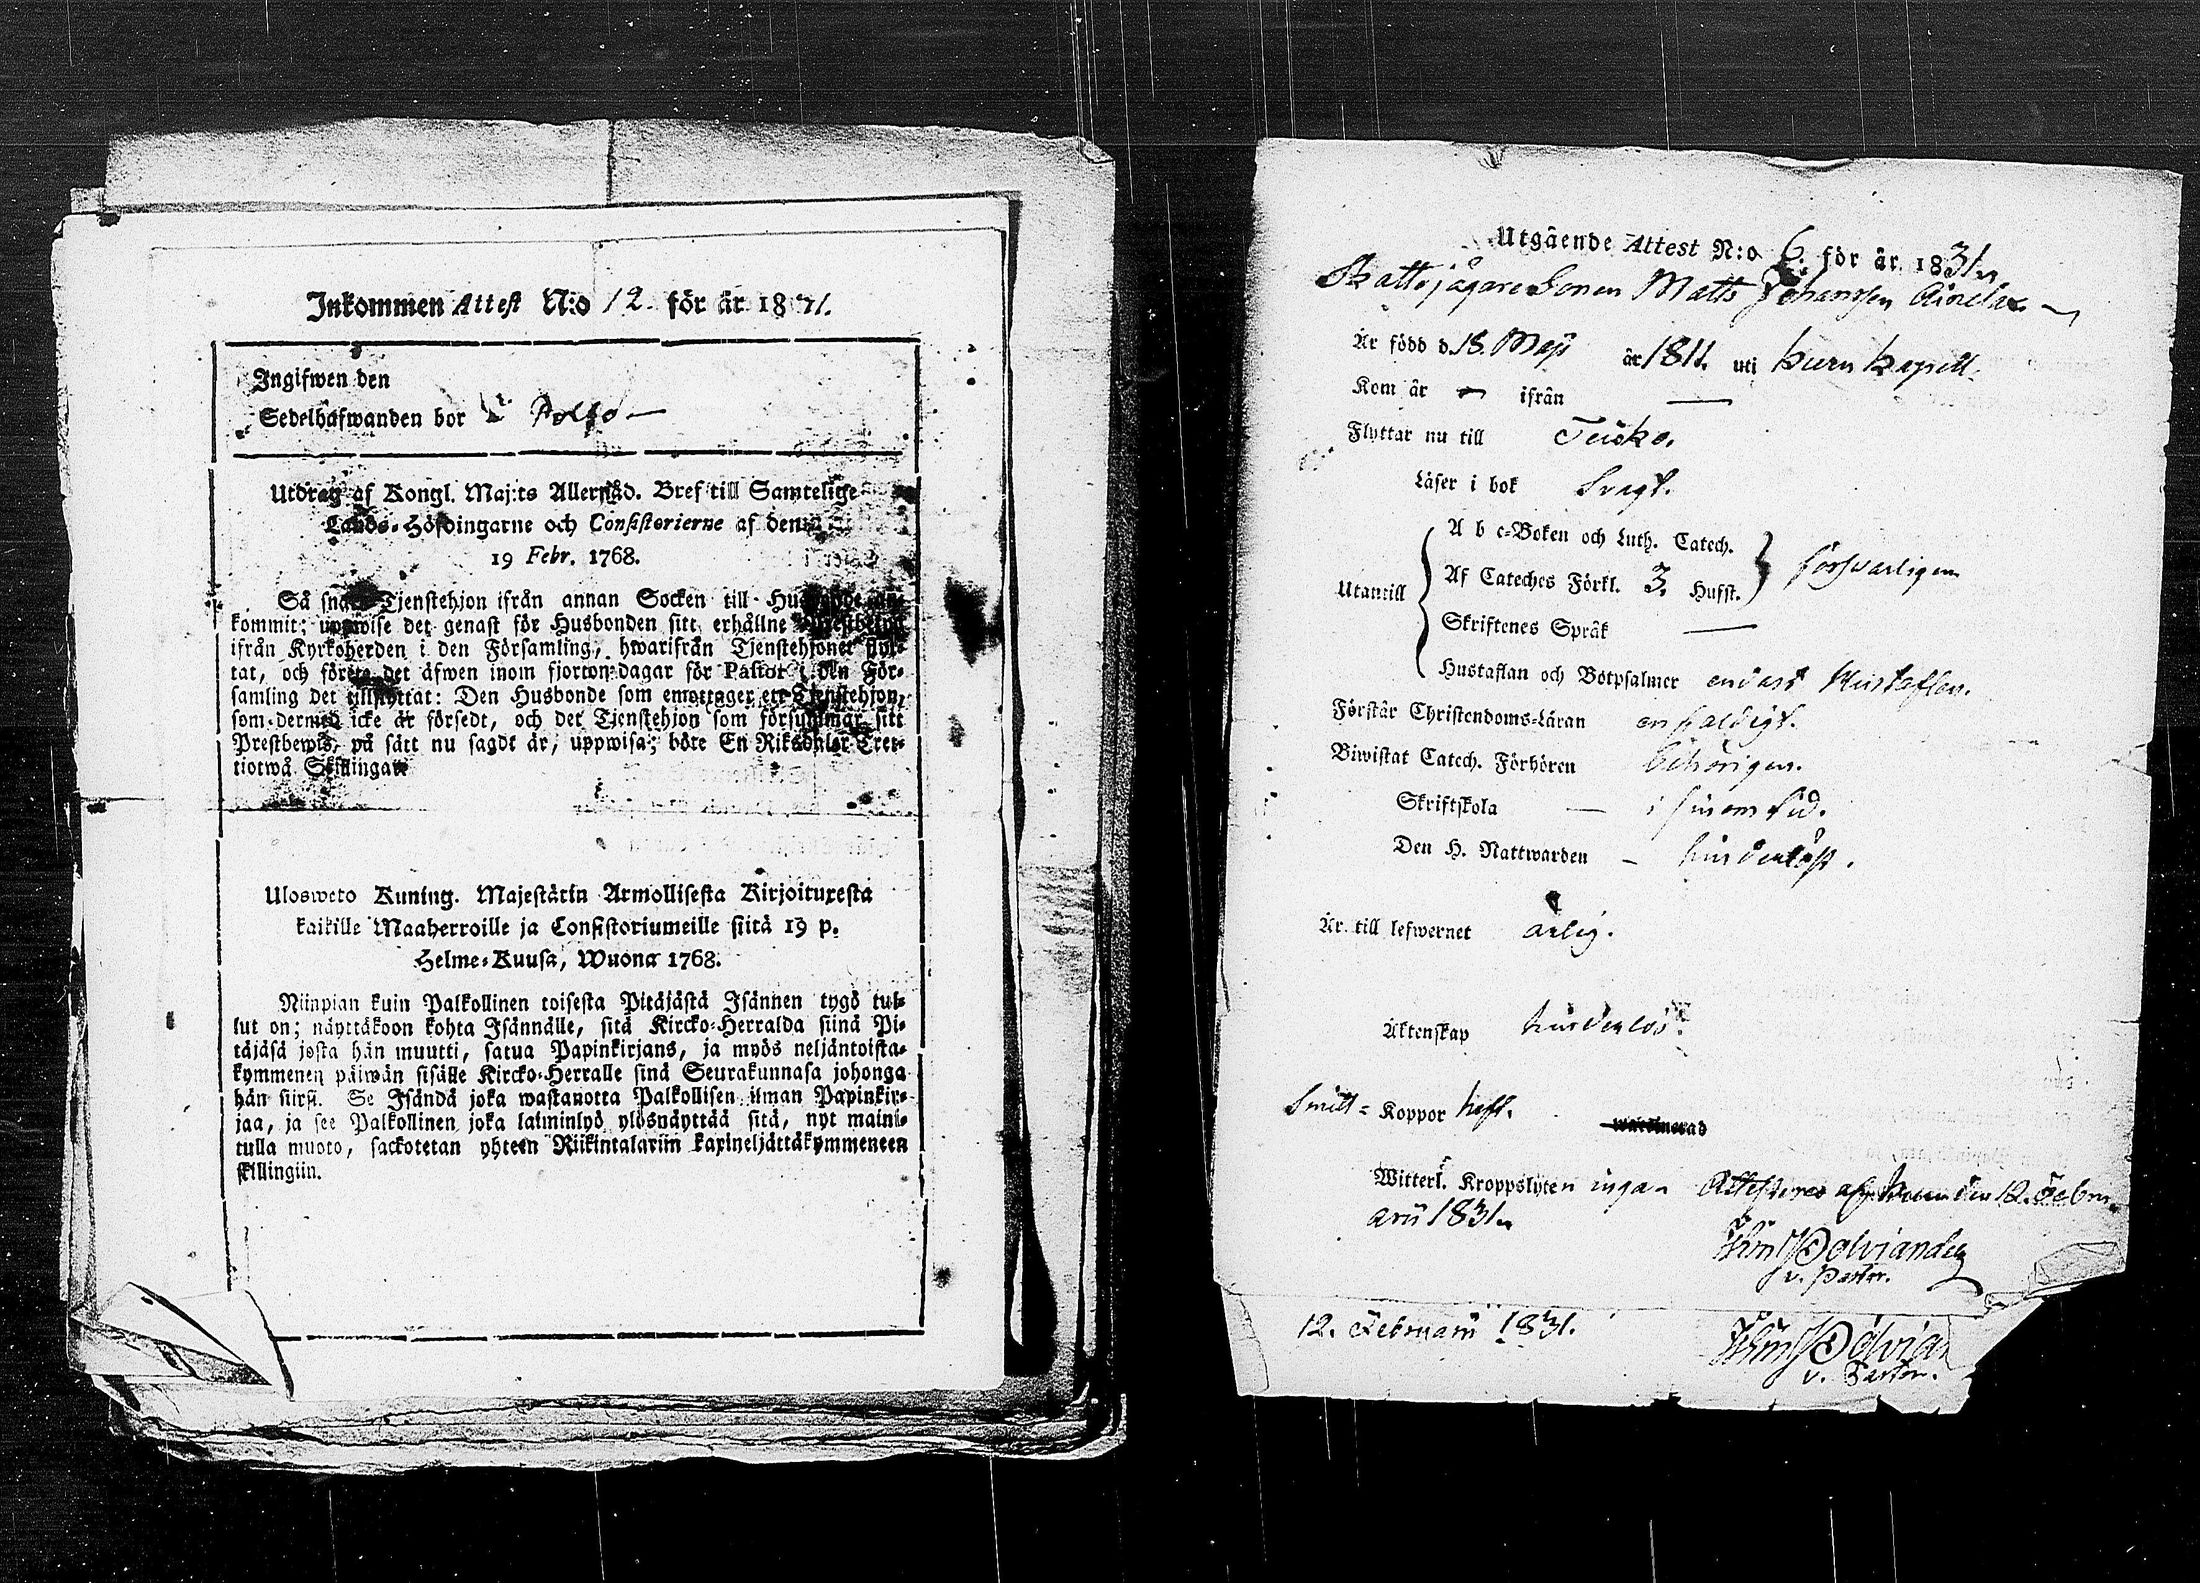 Inkommen Attest N:o 12. för år 1831.
Ingifwen den
Sedelhafwanden bor i Polso —
Utdrag af Kongl. Maj:ts Allernåd. Bref till Samtelige
Lands-Höfdingarne och Consistorierne af den
19 Febr. 1768.
Så snart Tjenstehjon ifrån annan Socken till
kommit; uppwise det genast för Husbonden sitt erhållne
ifrån Kyrkoherden i den Församling, hwarifrån Tjenstehjonet flyt-
tat, och förete det äfwen inom fjorton dagar för Pastor i den För-
samling det tillflyttat: Den Husbonde som emottager ett Tjenstehjon,
som dermed icke är försedt, och det Tjenstehjon som försummar sitt
Prestbewis, på sätt nu sagdt är, uppwisa; böte En Riksdaler Tret-
tiotwå Skillingar.
Ulosweto Kuning. Majestätin Armollisesta Kirjoituxesta
kaikille Maaherroille ja Consistoriumeille siitä 19 p.
Helme-Kuusa, Wuona 1768.
Niinpian kuin Palkollinen toisesta Pitäjästä Isännen tygö tul-
lut on; näyttäkoon kohta Isännälle, sitä Kircko-Herralda siinä Pi-
täjäsä josta hän muutti, satua Papinkirjans, ja myös neljäntoista-
kymmenen päiwän sisälle Kircko-Herralle sinä Seurakunnasa johonga
hän siirsi. Se Isändä joka wastanotta Palkollisen ilman Papinkir-
jaa, ja see Palkollinen joka laiminlyö ylösnäyttää sitä, nyt maini-
tulla muoto, sackotetan yhteen Riikintalariin kaxineljättäkymmeneen
skillingiin.
Utgående Attest N:o 6. för år 1831.
Skattejägare Sonen Matts Johansson
Är född d. 18. Maji år 1811. uti Kuru Kapell.
Kom år — ifrån —
Flyttar nu till Teisko.
Läser i bok Svagt.
A b c-Boken och Luth. Catech.
Utantill Af Cateches Förkl. 3. Hufst. försvarligen
Skriftenes Språk —
Hustaflan och Botpsalmer endast Hustaflan.
Förstår Christendoms-Läran enfaldigt.
Biwistat Catech. Förhören behörigen.
Skriftskola — i sinom tid.
Den H. Nattwarden — hinderlöst.
Är till lefwernet ärlig.
Äktenskap hinderlös.
Smitt-Koppor haft. waccinerad
Witterl. Kroppslyten inga. Attesteras af Kuru den 12. Febru-
arii 1831.
v. Pastor.
12. Februarii 1831.
v. Pastor.